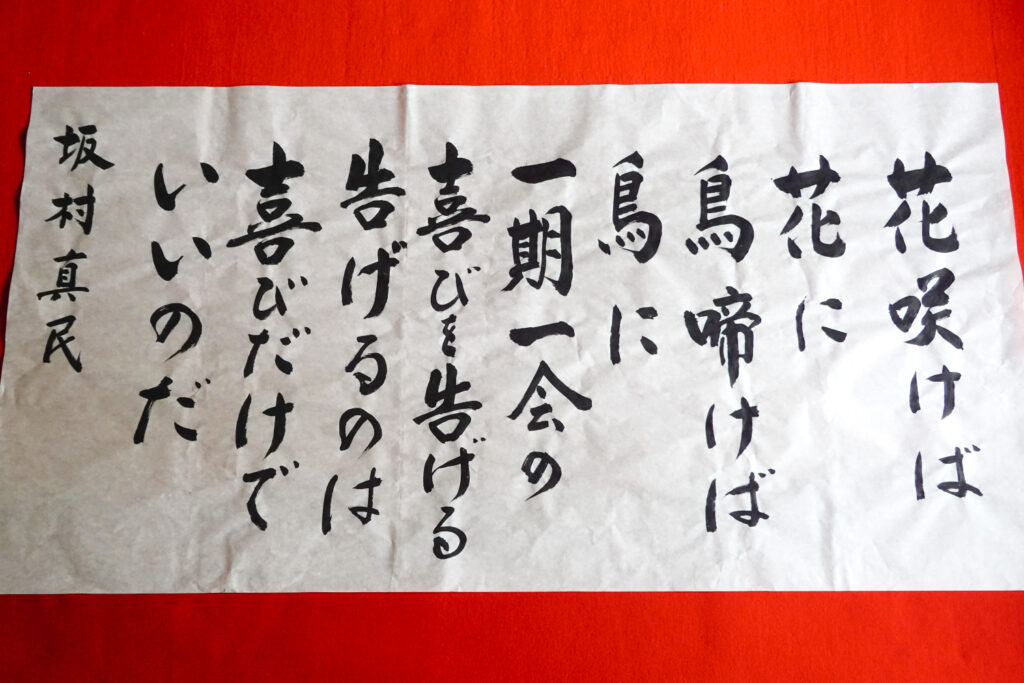 花咲けば
花に
鳥啼けば
鳥に
一期一会の
喜びを告げる
告げるのは
喜びだけで
いいのだ
坂村真民